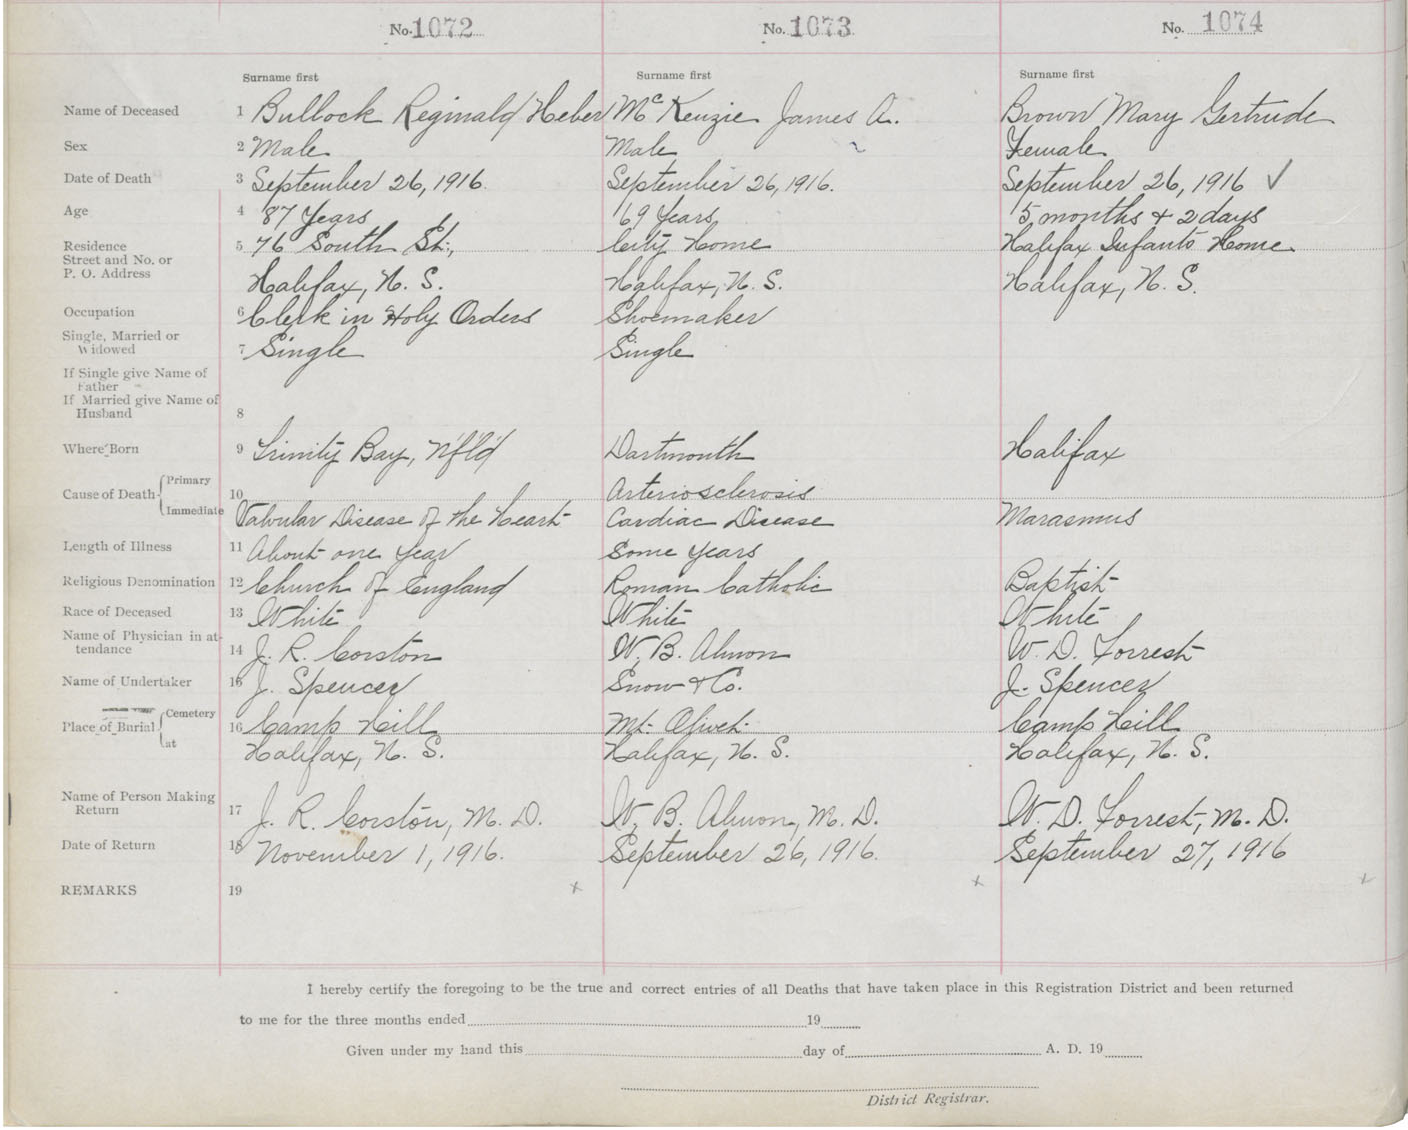 No. 1072 No. 1073 No. 1074
Surname first Surname first Surname first
Name of Deceased 1 Bullock Reginald Heber McKenzie James A. Brown Mary Gertrude
Sex 2 Male Male Female
Date of Death 3 September 26, 1916. September 26, 1916. September 26, 1916 ✓
Age 4 87 Years 69 Years 5 months & 2 days
Residence 5 76 South St., City Home Halifax Infants Home
Street and No. or
P. O. Address Halifax, N. S. Halifax, N. S. Halifax, N. S.
Occupation 6 Clerk in Holy Orders Shoemaker
Single, Married or
Widowed 7 Single Single
If Single give Name of
Father
If Married give Name of
Husband 8
Where Born 9 Trinity Bay, N'f'l'd Dartmouth Halifax
Primary
Cause of Death 10 Arteriosclerosis
Immediate Valvular Disease of the Heart Cardiac Disease Marasmus
Length of Illness 11 About one year Some years
Religious Denomination 12 Church of England Roman Catholic Baptist
Race of Deceased 13 White White White
Name of Physician in at-
tendance 14 J. R. Corston W. B. Almon W. D. Forrest
Name of Undertaker 15 J. Spencer Snow & Co. J. Spencer
Cemetery
Place of Burial 16 Camp Hill Mt. Olivet Camp Hill
at Halifax, N. S. Halifax, N. S. Halifax, N. S.
Name of Person Making
Return 17 J. R. Corston, M. D. W. B. Almon, M. D. W. D. Forrest, M. D.
Date of Return 18 November 1, 1916. September 26, 1916. September 27, 1916
REMARKS 19 x x x
I hereby certify the foregoing to be the true and correct entries of all Deaths that have taken place in this Registration District and been returned
to me for the three months ended 19
Given under my hand this day of A. D. 19
District Registrar.